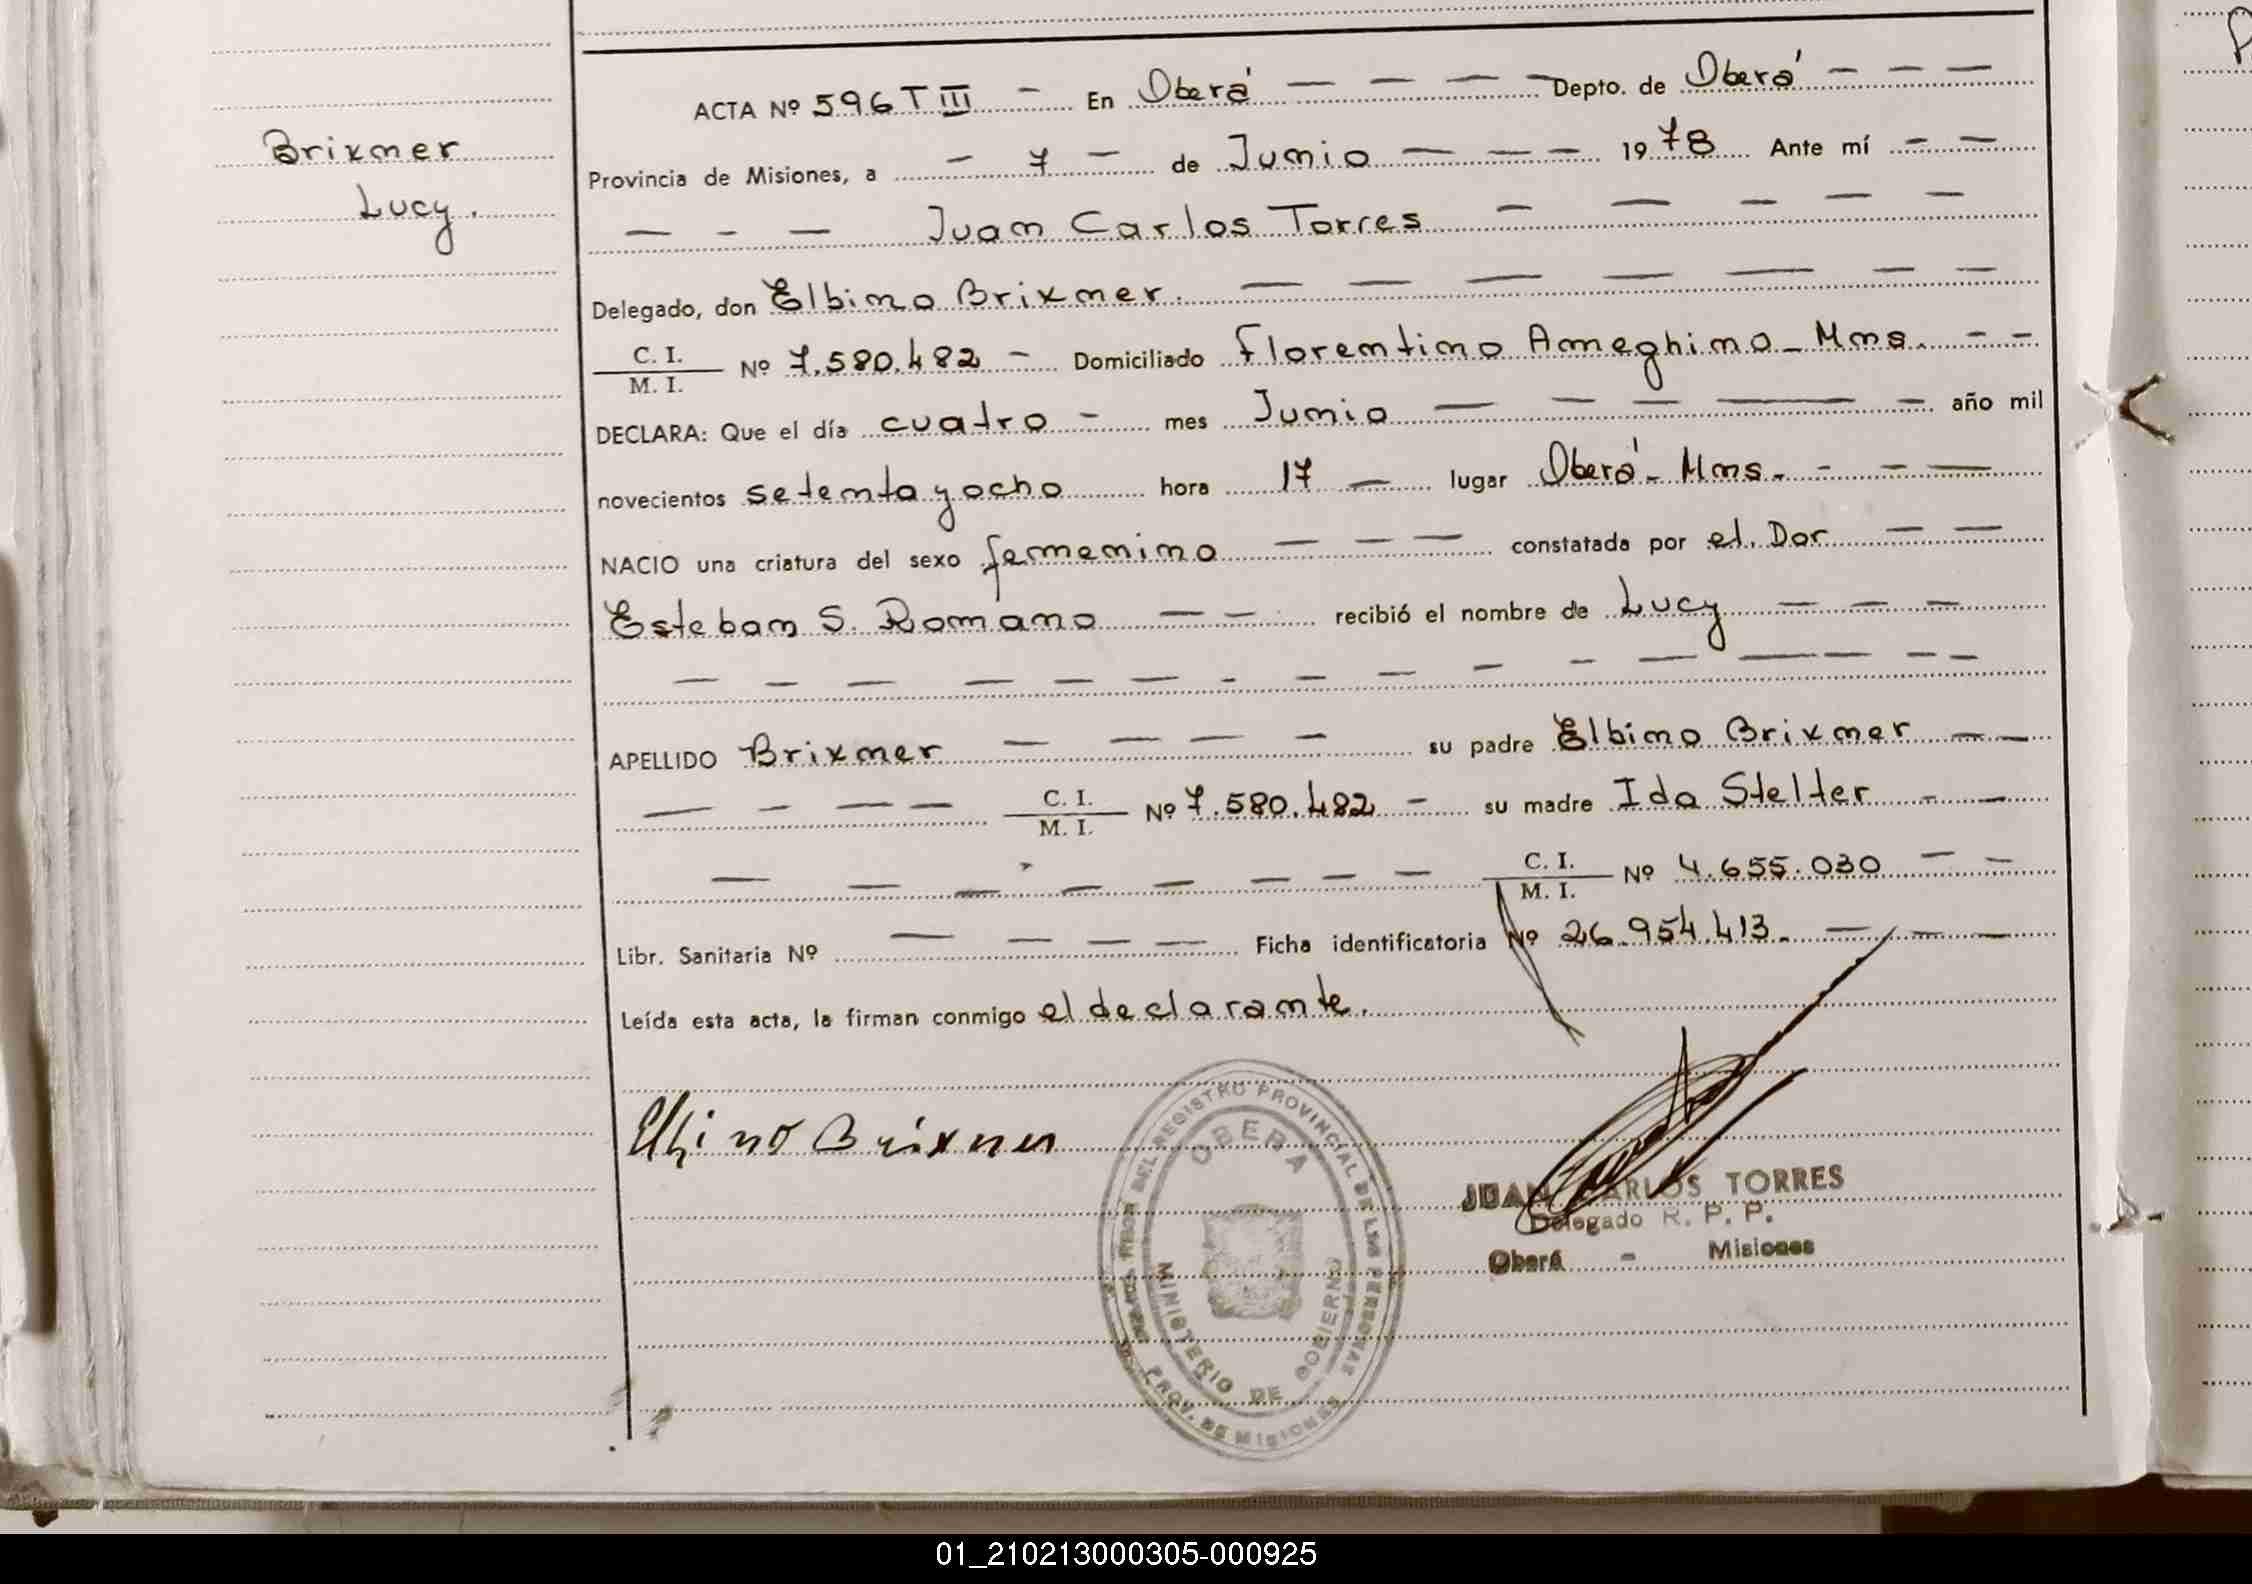 Brixner
Lucy.
ACTA Nº 596 T III - En Oberá - - - - Depto. de Oberá - - -
Provincia de Misiones, a - 7 - de Junio - - - 1978 Ante mí - -
- - - Juan Carlos Torres - - - - -
Delegado, don Elbino Brixner. - - - - - - -
C. I.
M. I. Nº 7.580.482 - Domiciliado Florentino Ameghino - Mns. - -
DECLARA: Que el día cuatro - mes Junio - - - - - año mil
novecientos setenta y ocho hora 17 - lugar Oberá - Mns. - - -
NACIO una criatura del sexo femenino - - - constatada por el. Dor - -
Esteban S. Romano - - recibió el nombre de Lucy - - -
- - - - - - - - - - - - - - - -
APELLIDO Brixner - - - - su padre Elbino Brixner - -
- - - - C. I.
M. I. Nº 7.580.482 - su madre Ida Stelter - -
- - - - - - - - C. I.
M. I. Nº 4.655.030 - -
Libr. Sanitaria Nº - - - - Ficha identificatoria Nº 26.954.413. - - -
Leída esta acta, la firman conmigo el declarante.
Elbino Brixner
DEL REGISTRO PROVINCIAL DE LAS PERSONAS
OBERA
MINISTERIO DE GOBIERNO
PROV. DE MISIONES
JUAN CARLOS TORRES
Delegado R. P. P.
Oberá - Misiones
01_210213000305-000925